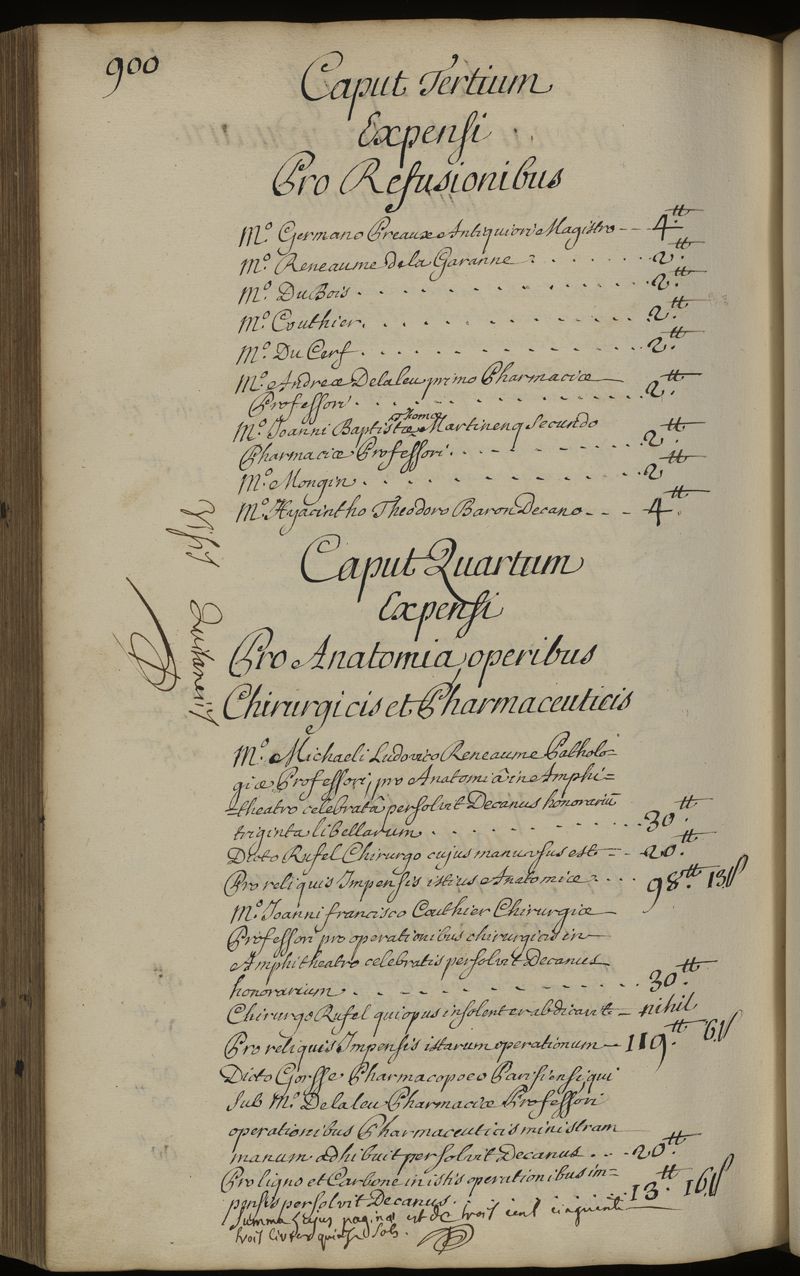 900
Caput Tertium
Expensi
Pro Refusionibus
M.º Germano Preaux Antiquiori Magistro -- 4.tt
M.º Reneaume De la Garanne . . . . . . . 2.tt
M.º DuBois . . . . . . . . . . 2.tt
M.º Couthier . . . . . . . . . . 2.tt
M.º Du Cerf . . . . . . . . . . 2.tt
M.º Andreæ Delaleu primo Pharmaciæ
Professori . . . . . . . . . . 2.tt
M.º Joanni Baptistæ Thomæ Martinenq Secundo
Pharmaciæ Professori . . . . . . . . 2.tt
M.º Mongin . . . . . . . . . . 2.tt
M.º Hyacintho Theodoro Baron Decano - - - 4.tt
Caput Quartum
Expensi
Pro Anatomia, operibus
Chirurgicis et Pharmaceuticis
M.º Michaeli Ludovico Reneaume Patholo=
giæ Professori, pro Anatomiâ in Amphi=
theatro celebratâ persolvit Decanus honorariũ
triginta libellarum . . . . . . . . 30.tt
Dicto Rufel Chirurgo cujus manu usus est = - 20.tt
Pro reliquis Impensis istius Anatomiæ . . . . 98.tt 13ſ
M.º Joanni francisco Couthier Chirurgiæ
Professori pro operationibus chirurgicis in
Amphitheatro celebratis persolvit Decanus
honorarium . . . . . . . . . . 30.tt
Chirurgo Rufel qui opus insolenter abdicavit - nihil
Pro reliquis Impensis istarum operationum - 119.tt 6ſ
Dicto Gorsse Pharmacopoeo Parisiensi, qui
sub M.º Delaleu Pharmaciæ Professori
operationibus Pharmaceuticis ministram
manum adhibuit persolvit Decanus . . - 20.tt
Pro ligno et Carbone in istis operationibus im=
pensis persolvit Decanus . . . . . . 13.tt 16ſ
Summa hujus paginæ est de trois cent cinquante
trois livres quinze Sols.
Visis